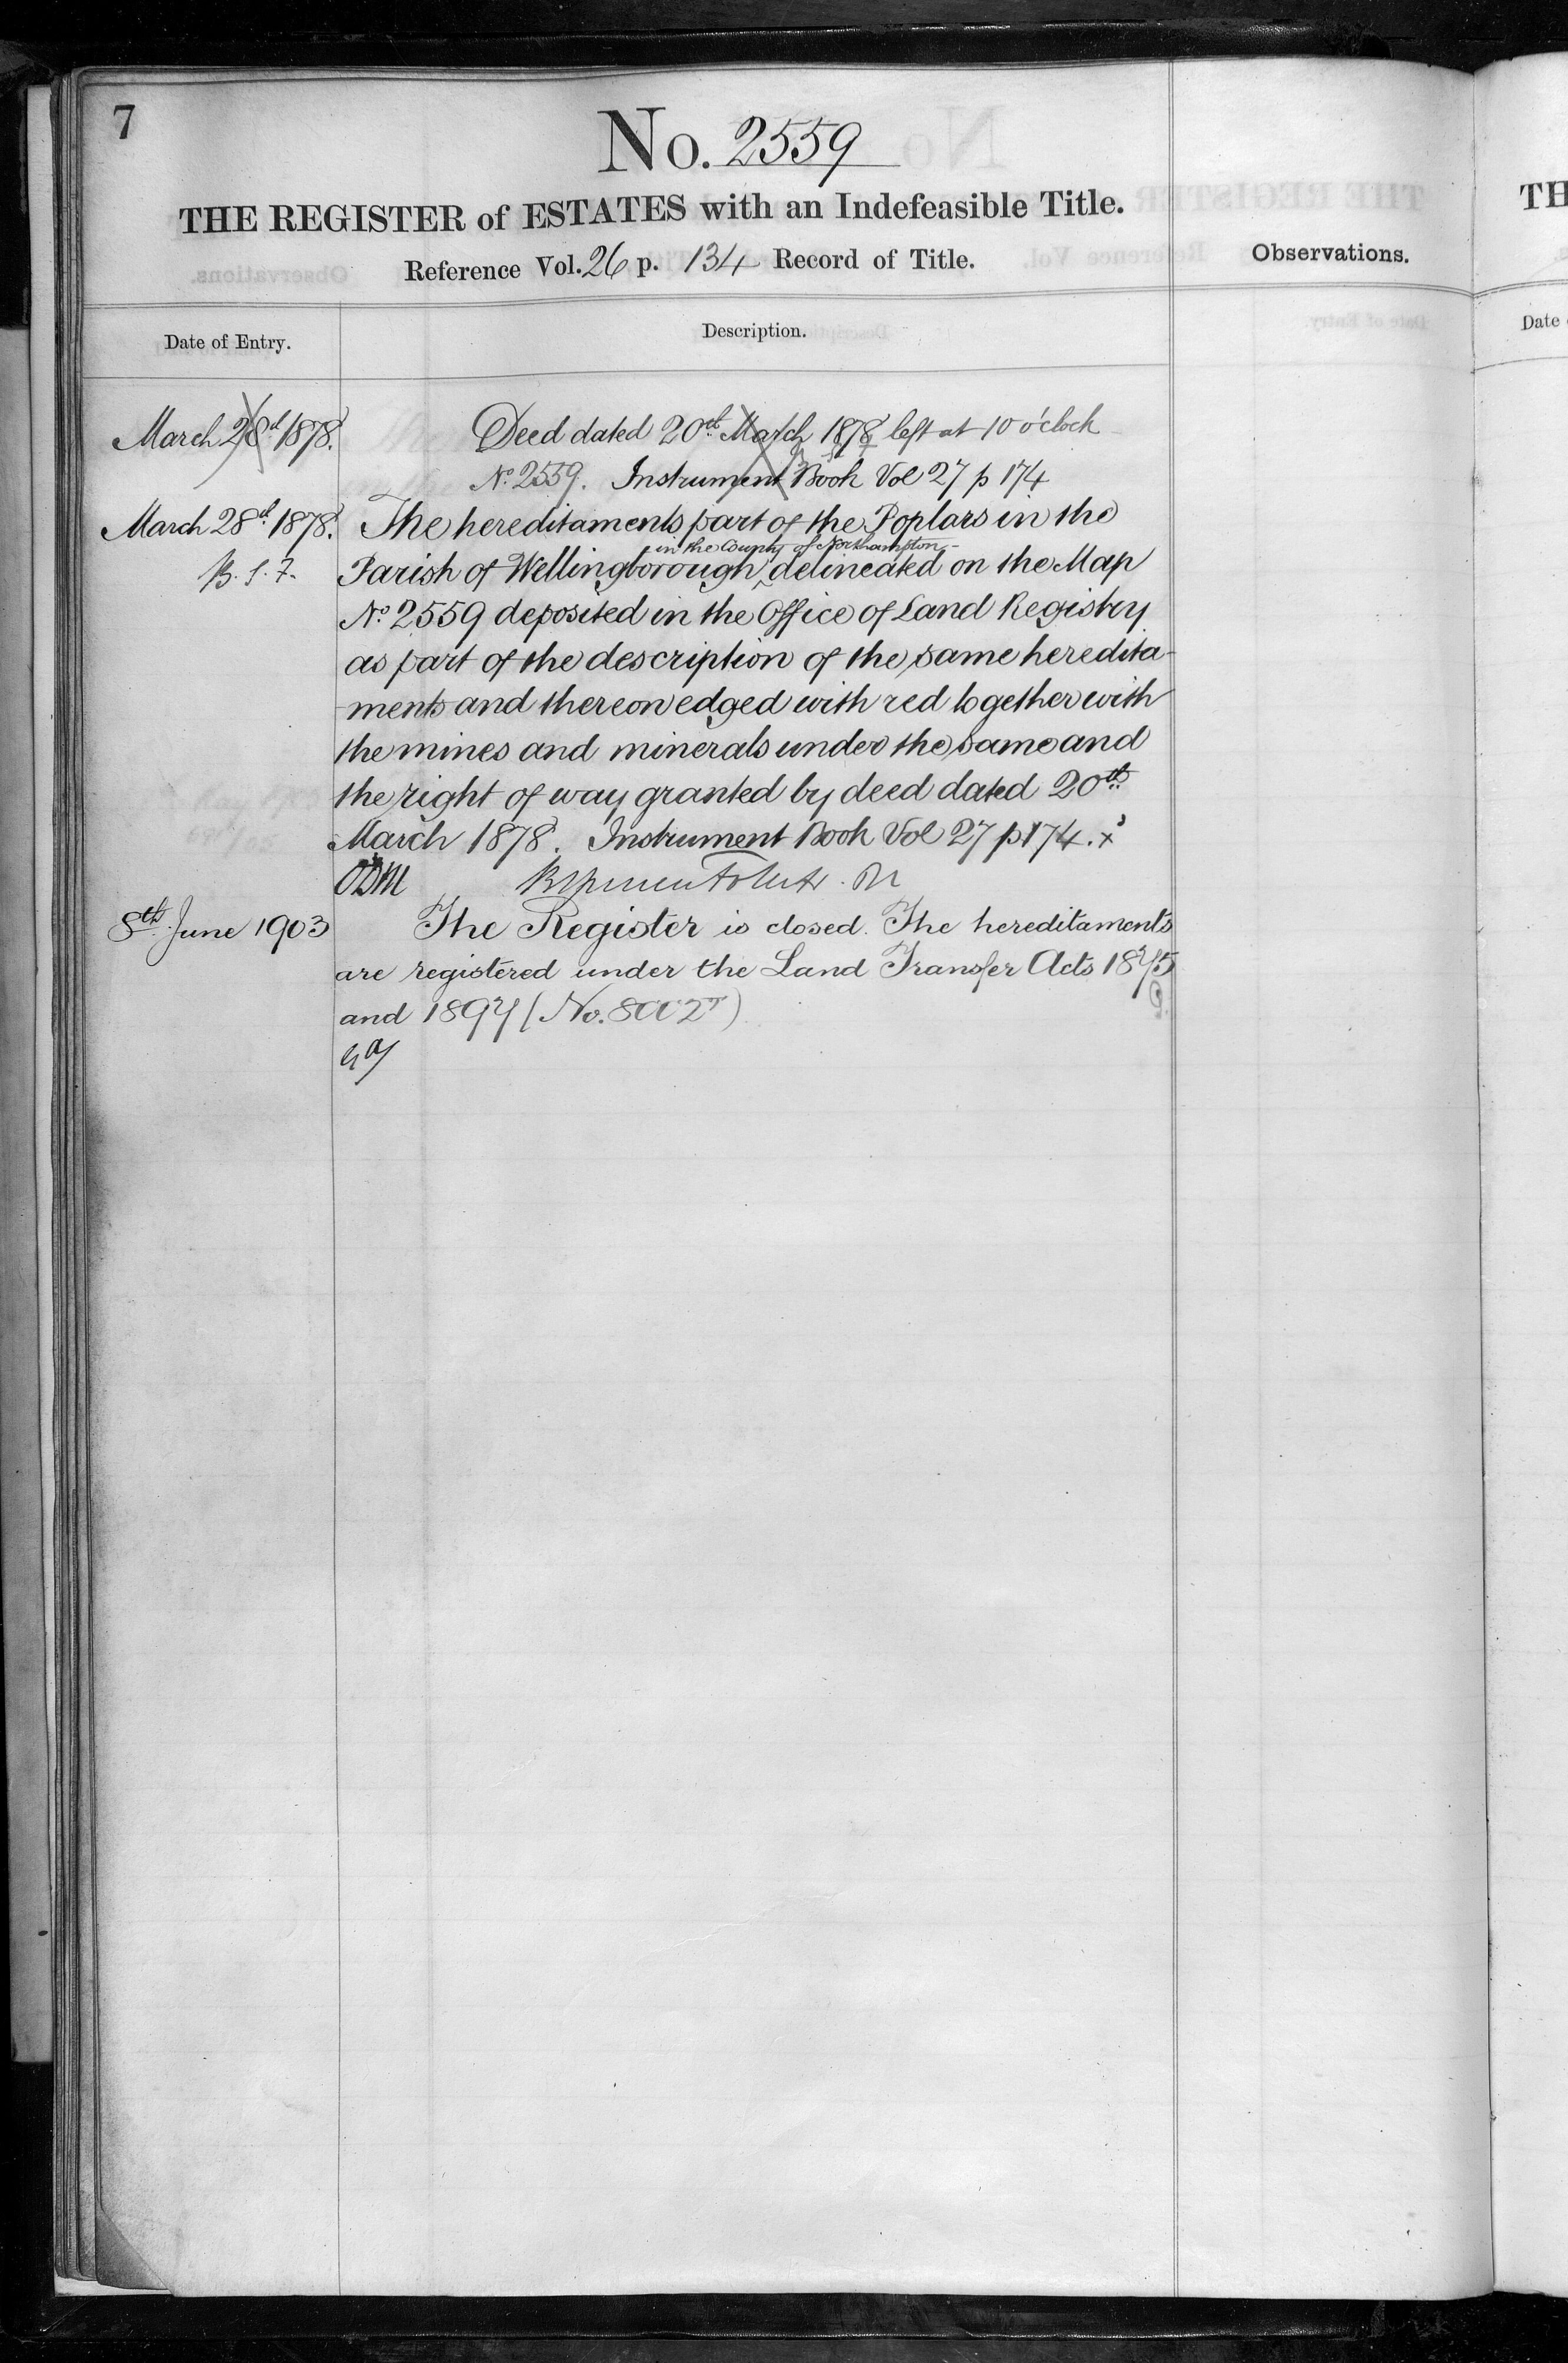 7
No. 2559
THE REGISTER of ESTATES with an Indefeasible Title.
Reference Vol. 26 p. 134 Record of Title.
Observations.
Date of Entry.
Description.
March 28th 1878.
Deed dated 20th March 1878 left at 10 o'clock
No 2559. Instrument Book Vol 27 p 174
March 28th 1878.
The hereditaments part of the Poplars in the
B. S. F.
in the County of Northampton
Parish of Wellingborough ‸ delineated on the Map
No 2559 deposited in the Office of Land Registry
as part of the description of the same heredita-
-ments and thereon edged with red together with
the mines and minerals under the same and
the right of way granted by deed dated 20th
March 1878. Instrument Book Vol 27 p 174. x
8th June 1903
The Register is closed. The hereditaments
are registered under the Land Transfer Acts 1875
and 1897 (No. 8002
TH
Date